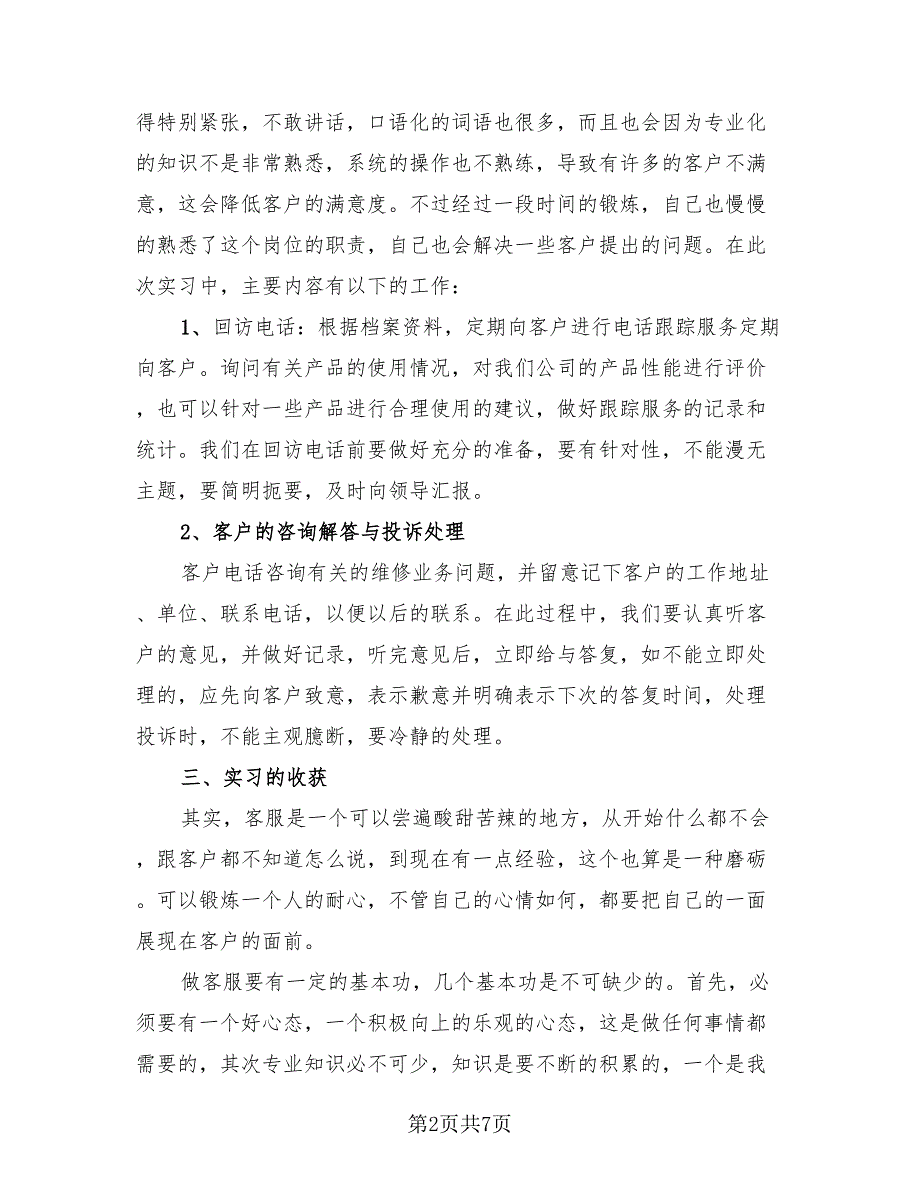 得特别紧张，不敢讲话，口语化的词语也很多，而且也会因为专业化
的知识不是非常熟悉，系统的操作也不熟练，导致有许多的客户不满
意，这会降低客户的满意度。不过经过一段时间的锻炼，自己也慢慢
的熟悉了这个岗位的职责，自己也会解决一些客户提出的问题。在此
次实习中，主要内容有以下的工作：
1、回访电话：根据档案资料，定期向客户进行电话跟踪服务定期
向客户。询问有关产品的使用情况，对我们公司的产品性能进行评价
，也可以针对一些产品进行合理使用的建议，做好跟踪服务的记录和
统计。我们在回访电话前要做好充分的准备，要有针对性，不能漫无
主题，要简明扼要，及时向领导汇报。
2、客户的咨询解答与投诉处理
客户电话咨询有关的维修业务问题，并留意记下客户的工作地址
、单位、联系电话，以便以后的联系。在此过程中，我们要认真听客
户的意见，并做好记录，听完意见后，立即给与答复，如不能立即处
理的，应先向客户致意，表示歉意并明确表示下次的答复时间，处理
投诉时，不能主观臆断，要冷静的处理。
三、实习的收获
其实，客服是一个可以尝遍酸甜苦辣的地方，从开始什么都不会
，跟客户都不知道怎么说，到现在有一点经验，这个也算是一种磨砺
。可以锻炼一个人的耐心，不管自己的心情如何，都要把自己的一面
展现在客户的面前。
做客服要有一定的基本功，几个基本功是不可缺少的。首先，必
须要有一个好心态，一个积极向上的乐观的心态，这是做任何事情都
需要的，其次专业知识必不可少，知识是要不断的积累的，一个是我
第2页共7页